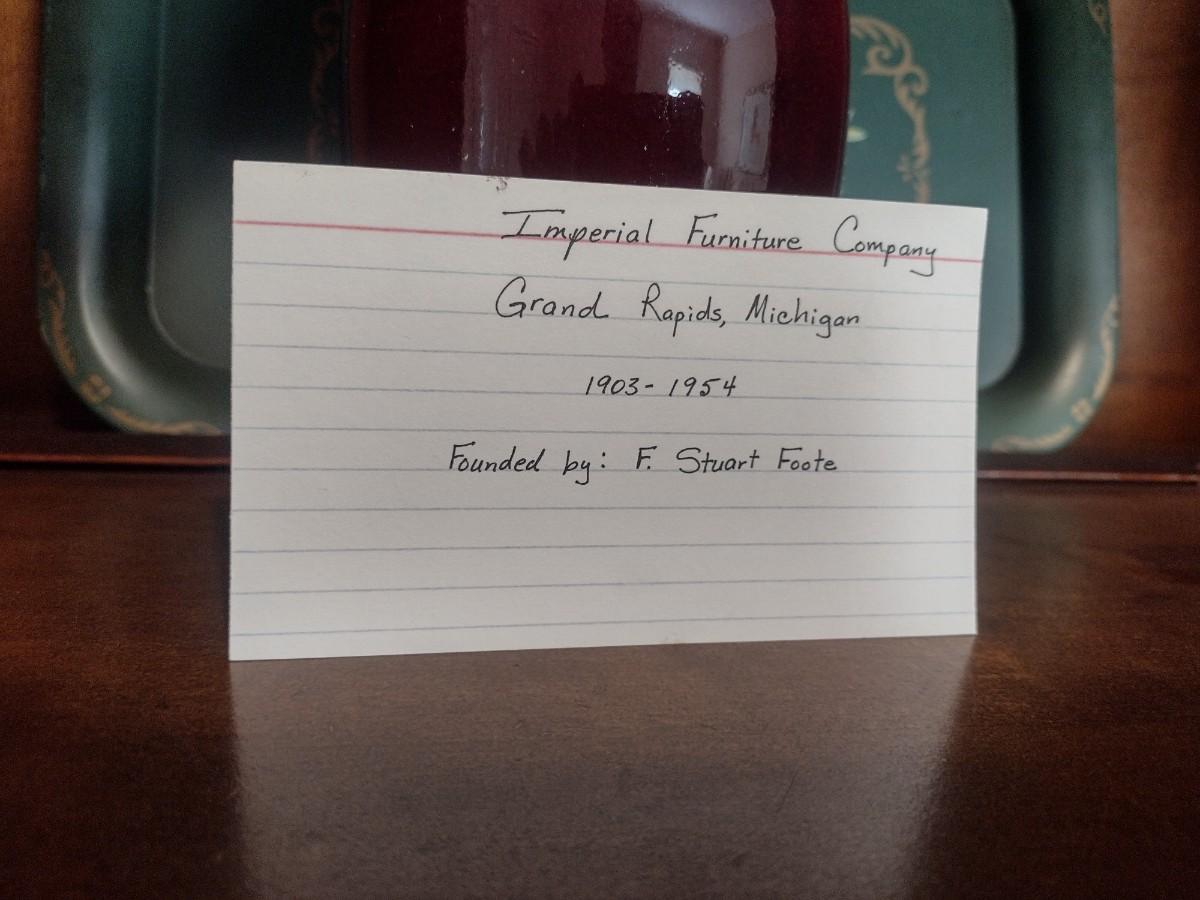 Imperial Furniture Company
Grand Rapids, Michigan
1903-1954
Founded by: F. Stuart Foote